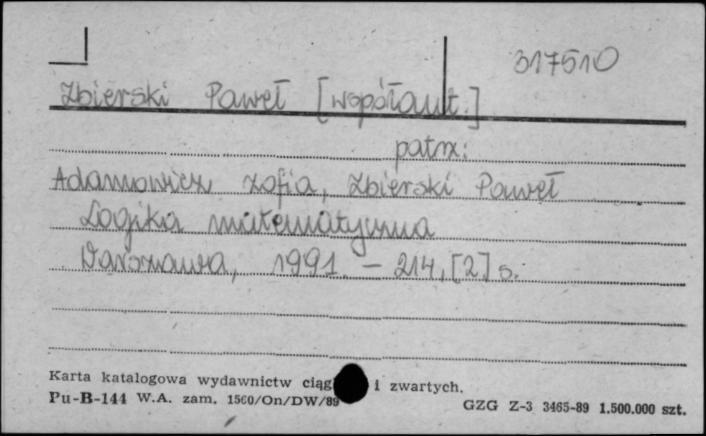 317510
Zbierski Paweł [współaut.]
patrz:
Adamowicz Zofia, Zbierski Paweł
Logika matematyczna
Warszawa, 1991. – 214, [2] s.
Karta katalogowa wydawnictw ciąg i zwartych.
Pu-B-144 W.A. zam. 1560/On/DW/89
GZG Z-3 3465-89 1.500.000 szt.